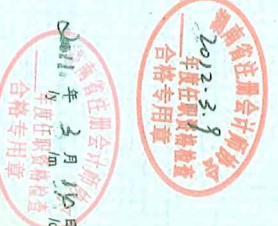 湖南省注册会计师协会
2012.3.9
年度任职资格检查
合格专用章
湖南省注册会计师协会
年 3 月 日
年度任职资格检查
/y /m
合格专用章